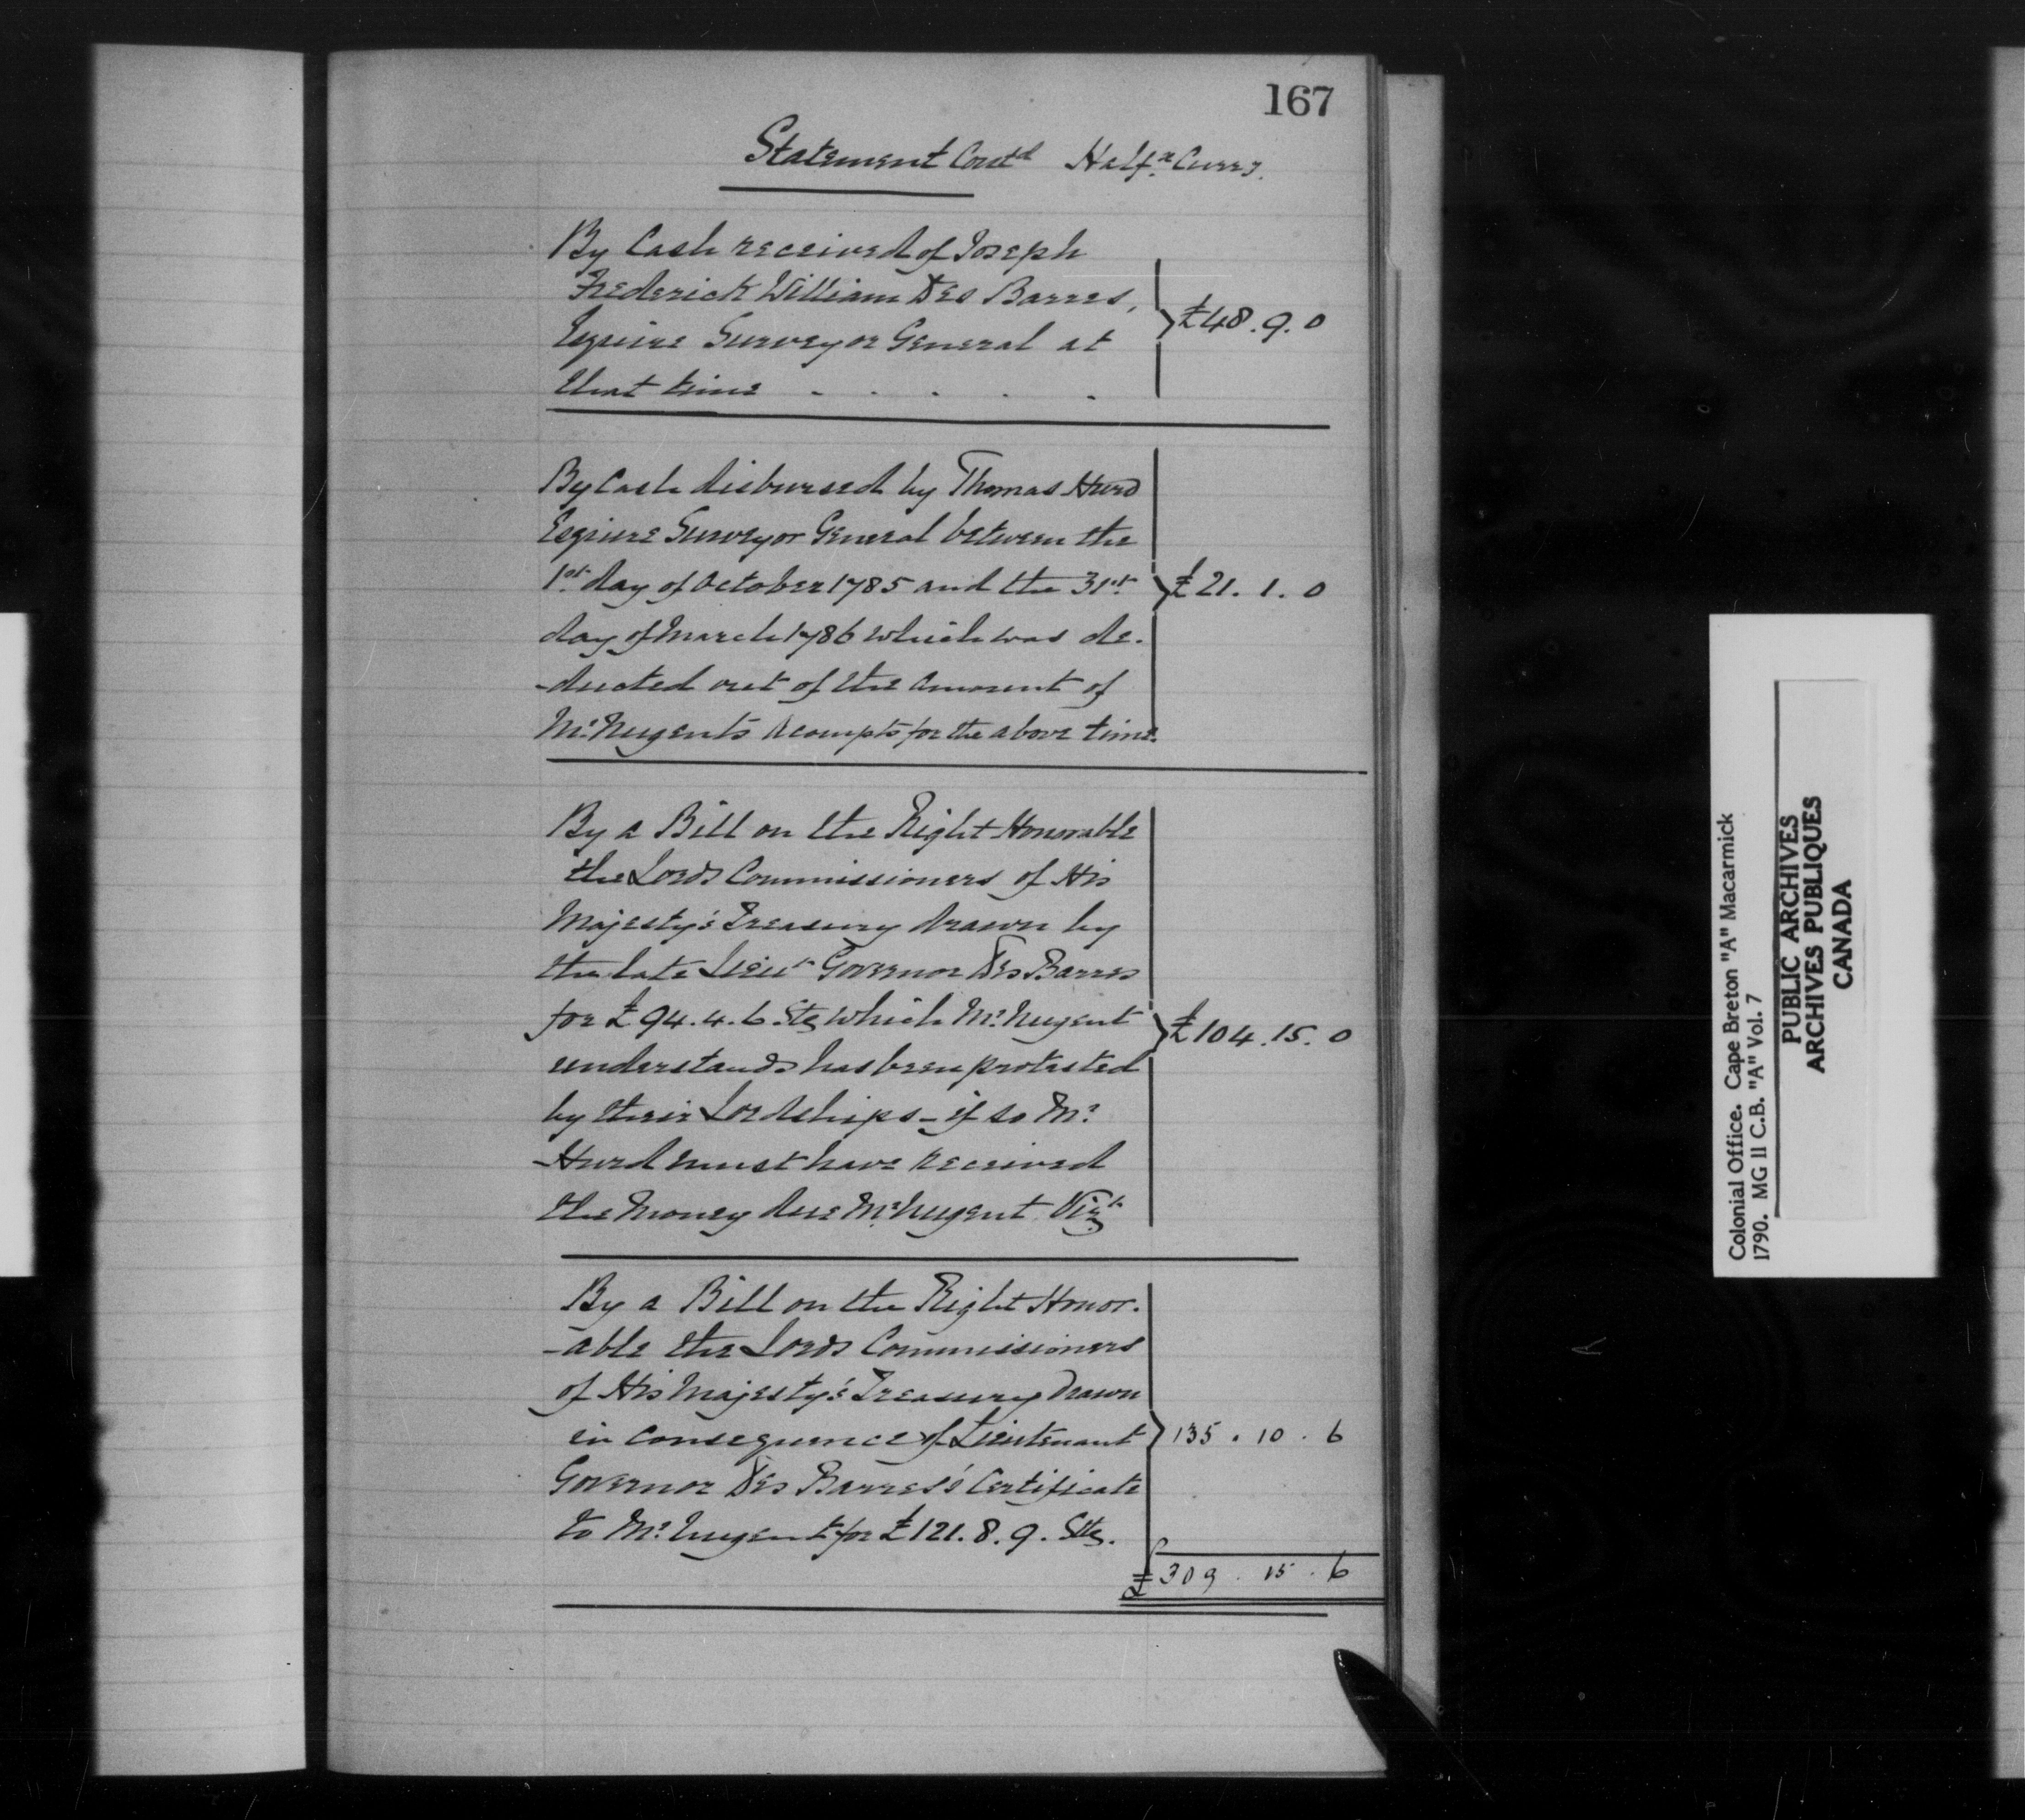 167
Statement Contd Halfx Curry.
By Cash received of Joseph
Frederick William Des Barres,
Esquire Surveyor General at
that time - . . . .
£48.9.0
By Cash disbursed by Thomas Hurd
Esquire Surveyor General between the
1st day of October 1785 and the 31st
day of March 1786 which was de-
-ducted out of the amount of
Mr. Nugent's Accompts for the above time.
£21.1.0
By a Bill on the Right Honorable
the Lords Commissioners of His
Majesty's Treasury drawn by
the late Lieut Governor Des Barres
for £94.4.6. Stg which Mr. Nugent
understands has been protested
by their Lordships - if so Mr.
Hurd must have received
the money due Mr. Nugent Vizt
£104.15.0
By a Bill on the Right Honor-
-able the Lords Commissioners
of His Majesty's Treasury Drawn
in consequence of Lieutenant
Governor Des Barres's Certificate
to Mr. Nugent for £121.8.9. Stg.
135.10.6
£309.15.6
Colonial Office. Cape Breton "A" Macarmick
1790. MG 11 C.B. "A" Vol. 7
PUBLIC ARCHIVES
ARCHIVES PUBLIQUES
CANADA